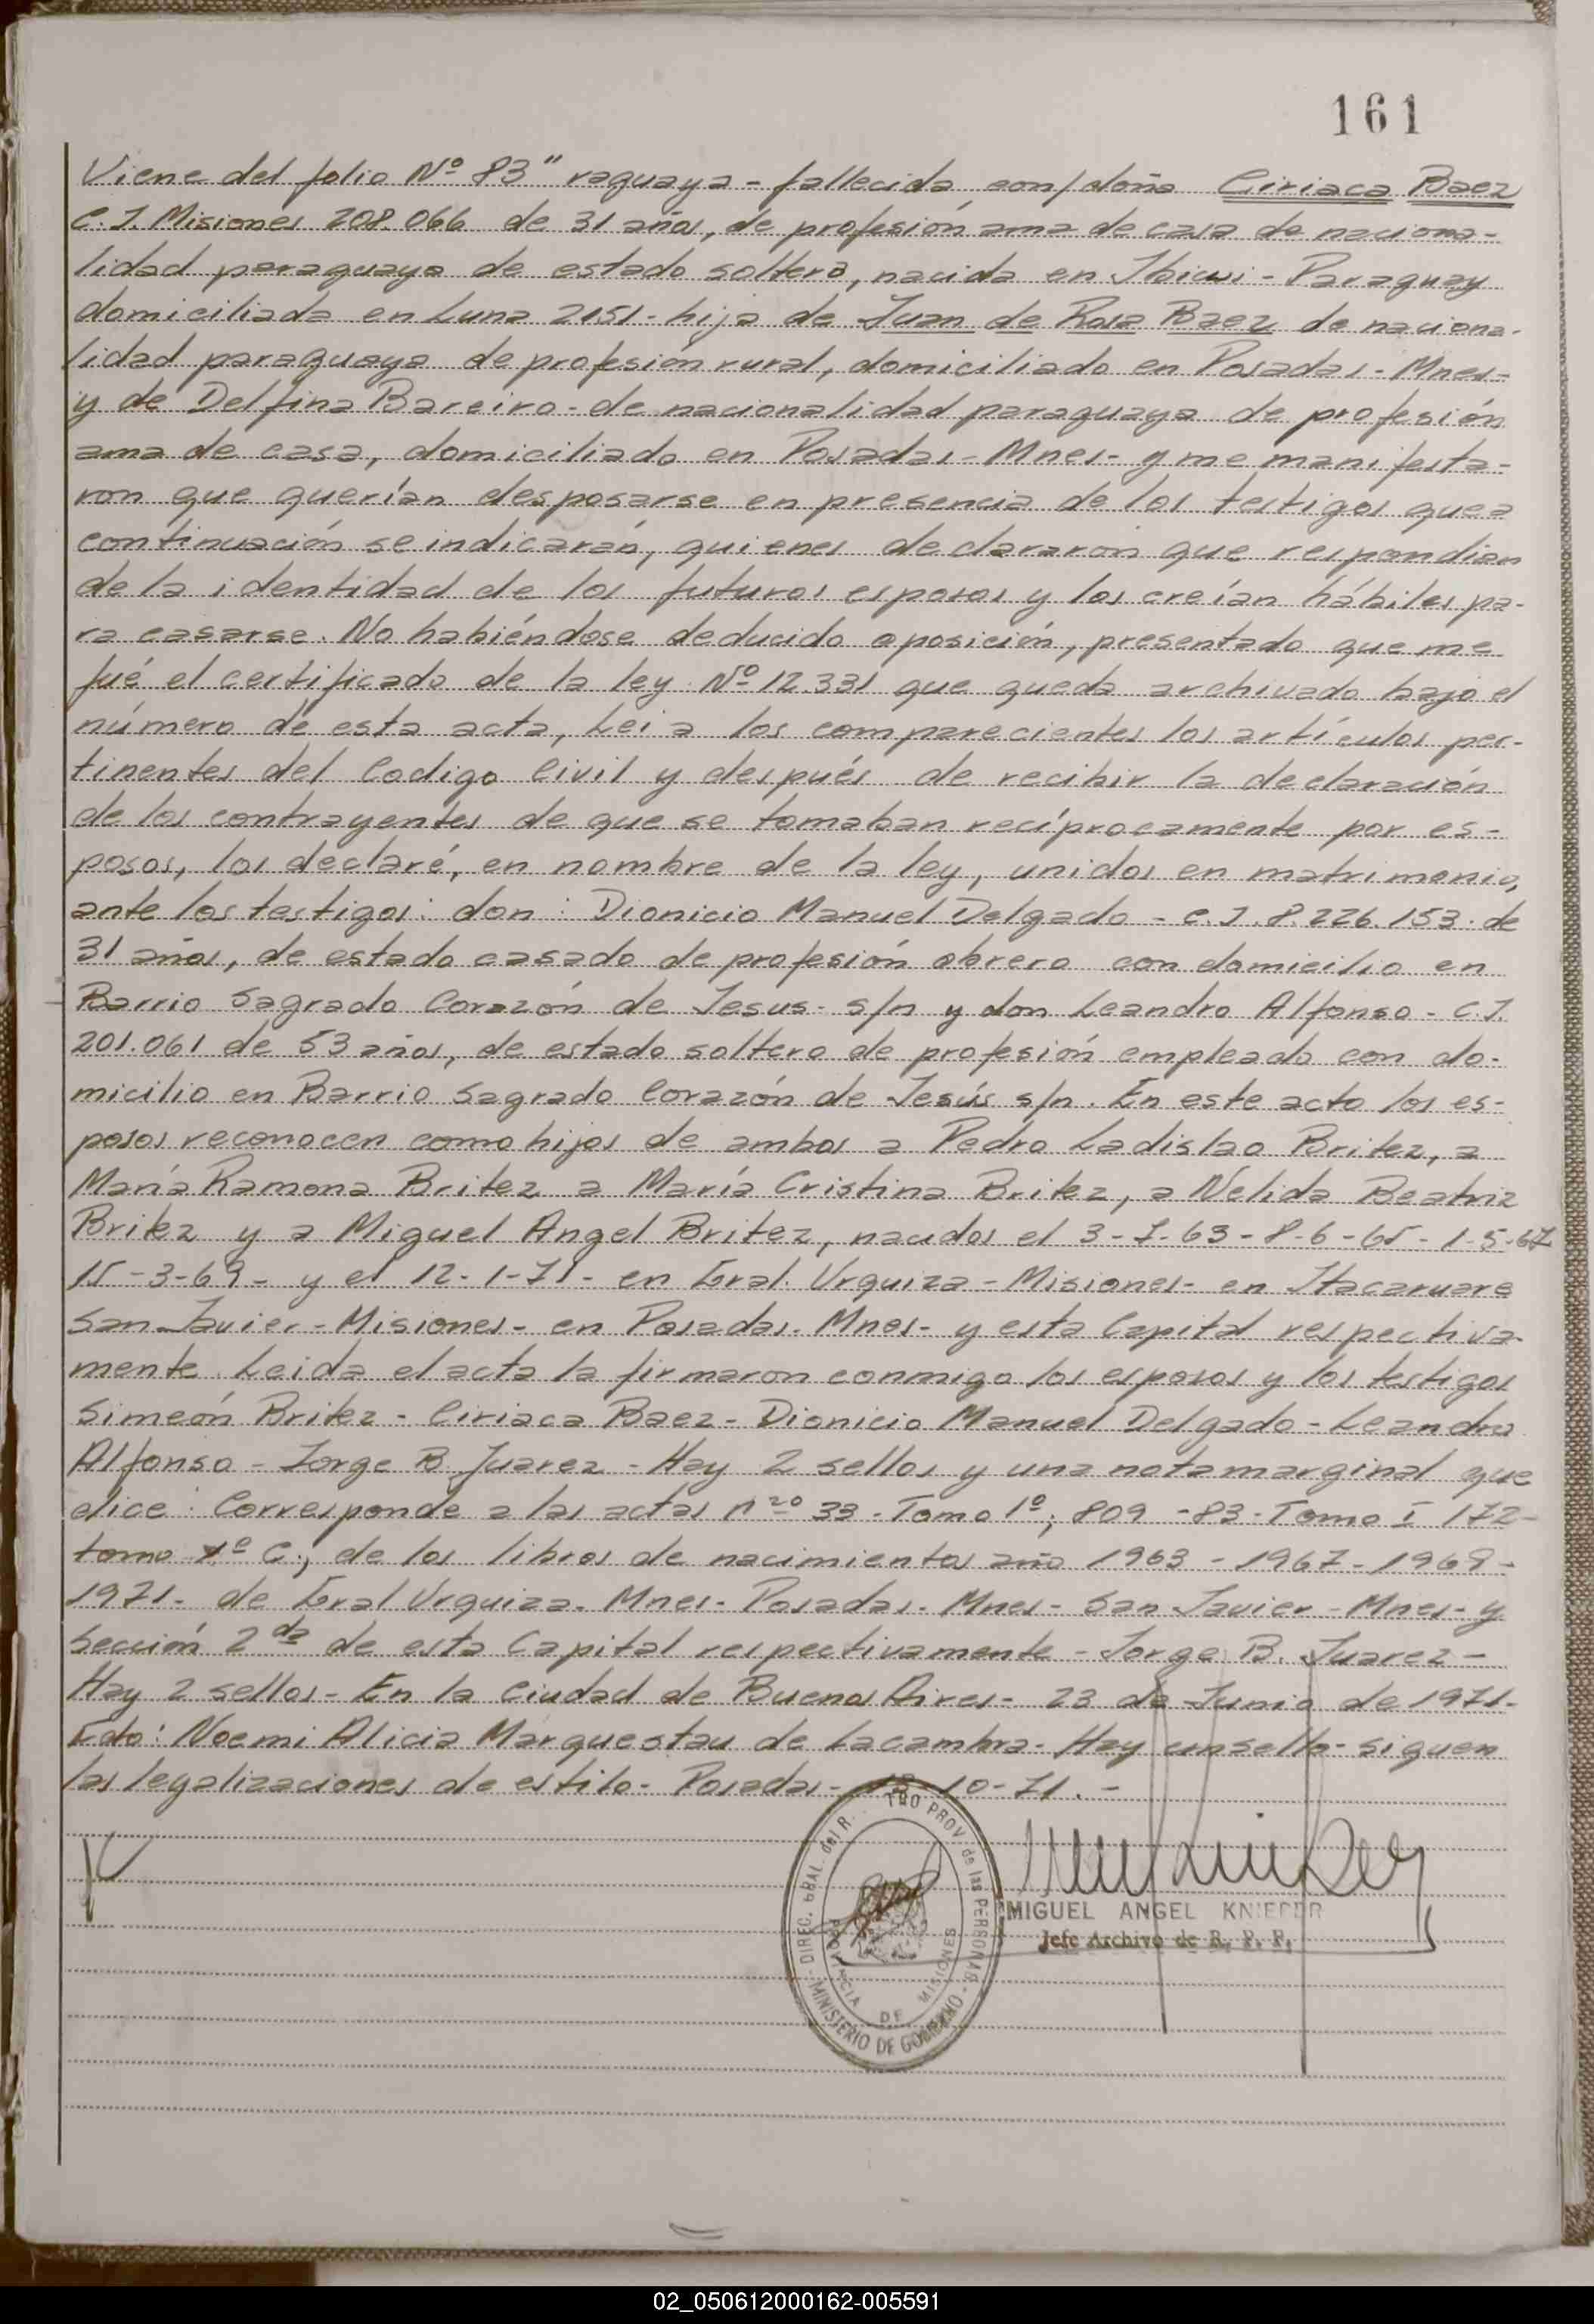 161
Viene del folio Nº 83" raguaya - fallecida, con/doña Ciriaca Baez
C.I. Misiones 208.066 de 31 años, de profesión ama de casa de naciona-
lidad paraguaya de estado soltera, nacida en Ibicui - Paraguay
domiciliada en Luna 2151 - hija de Juan de Rosa Baez de naciona-
lidad paraguaya de profesión rural, domiciliado en Posadas - Mnes -
y de Delfina Bareiro - de nacionalidad paraguaya de profesión
ama de casa, domiciliado en Posadas - Mnes - y me manifesta-
ron que querían desposarse en presencia de los testigos que a
continuación se indicarán, quienes declararon que respondian
de la identidad de los futuros esposos y los creían hábiles pa-
ra casarse. No habiéndose deducido oposición, presentado que me
fué el certificado de la ley Nº 12.331 que queda archivado bajo el
número de esta acta, Lei a los comparecientes los artículos per-
tinentes del Codigo Civil y después de recibir la declaración
de los contrayentes de que se tomaban recíprocamente por es-
posos, los declaré, en nombre de la ley, unidos en matrimonio,
ante los testigos: don: Dionicio Manuel Delgado - C.I. 8.226.153. de
31 años, de estado casado de profesión obrero con domicilio en
Barrio Sagrado Corazón de Jesus - s/n y don Leandro Alfonso - C.I.
201.061 de 53 años, de estado soltero de profesión empleado con do-
micilio en Barrio Sagrado Corazón de Jesús s/n. En este acto los es-
posos reconocen como hijos de ambos a Pedro Ladislao Britez, a
María Ramona Britez a María Cristina Britez, a Nelida Beatriz
Britez y a Miguel Angel Britez, nacidos el 3-7-63 - 8-6-65 - 1-5-67
15-3-69 - y el 12-1-71 - en Gral. Urquiza - Misiones - en Itacaruare
San Javier - Misiones - en Posadas - Mnes - y esta Capital respectiva-
mente. Leida el acta la firmaron conmigo los esposos y los testigos
Simeón Britez - Ciriaca Baez - Dionicio Manuel Delgado - Leandro
Alfonso - Jorge B. Juarez - Hay 2 sellos y una nota marginal que
dice: Corresponde a las actas nros 33 - Tomo 1º; 809 - 83 - Tomo I 172 -
tomo 1º C; de los libros de nacimientos año 1963 - 1967 - 1969 -
1971 - de Gral Urquiza - Mnes - Posadas - Mnes - San Javier - Mnes - y
Sección 2da de esta Capital respectivamente - Jorge B. Juarez -
Hay 2 sellos - En la Ciudad de Buenos Aires - 23 de Junio de 1971 -
Fdo: Noemi Alicia Marquestau de Lacambra - Hay un sello - siguen
las legalizaciones de estilo - Posadas - 13-10-71. -
DIREC. GRAL. del R. TRO PROV. de las PERSONAS
MINISTERIO DE GOBIERNO
PROVINCIA DE MISIONES
MIGUEL ANGEL KNIEPER
Jefe Archivo de R. P. P.
02_050612000162-005591